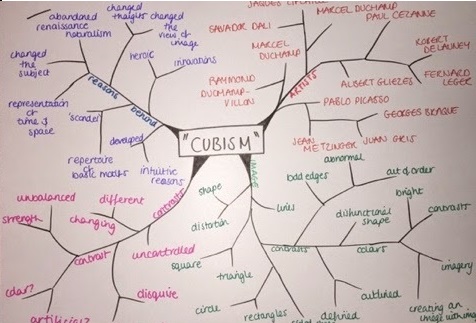 abandoned
renaissance
naturalism
changed
thoughts
changed
the
view of
image
heroic
changed
the
subject
reasons
behind
representation
of
time &
space
'scandel'
developed
repertoire
of
basic motifs
intuitive
reasons
JACQUES
MARCEL DUCHAMP
PAUL CEZANNE
SALVADOR DALI
MARCEL
DUCHAMP
RAYMOND
DUCHAMP-
VILLON
ARTISTS
ROBERT
DELAUNEY
FERNAND
LEGER
ALBERT GLEIZES
PABLO PICASSO
GEORGES BRAQUE
JEAN
METZINGER
JUAN GRIS
"CUBISM"
unbalanced
different
strength
changing
contrasts
contrast
uncontrolled
disguise
IMAGE
shape
distortion
lines
square
triangle
circle
rectangles
odd edges
abnormal
out of order
disfunctional
shape
bright
contrasts
contrasts
colours
imagery
outlined
defined
creating an